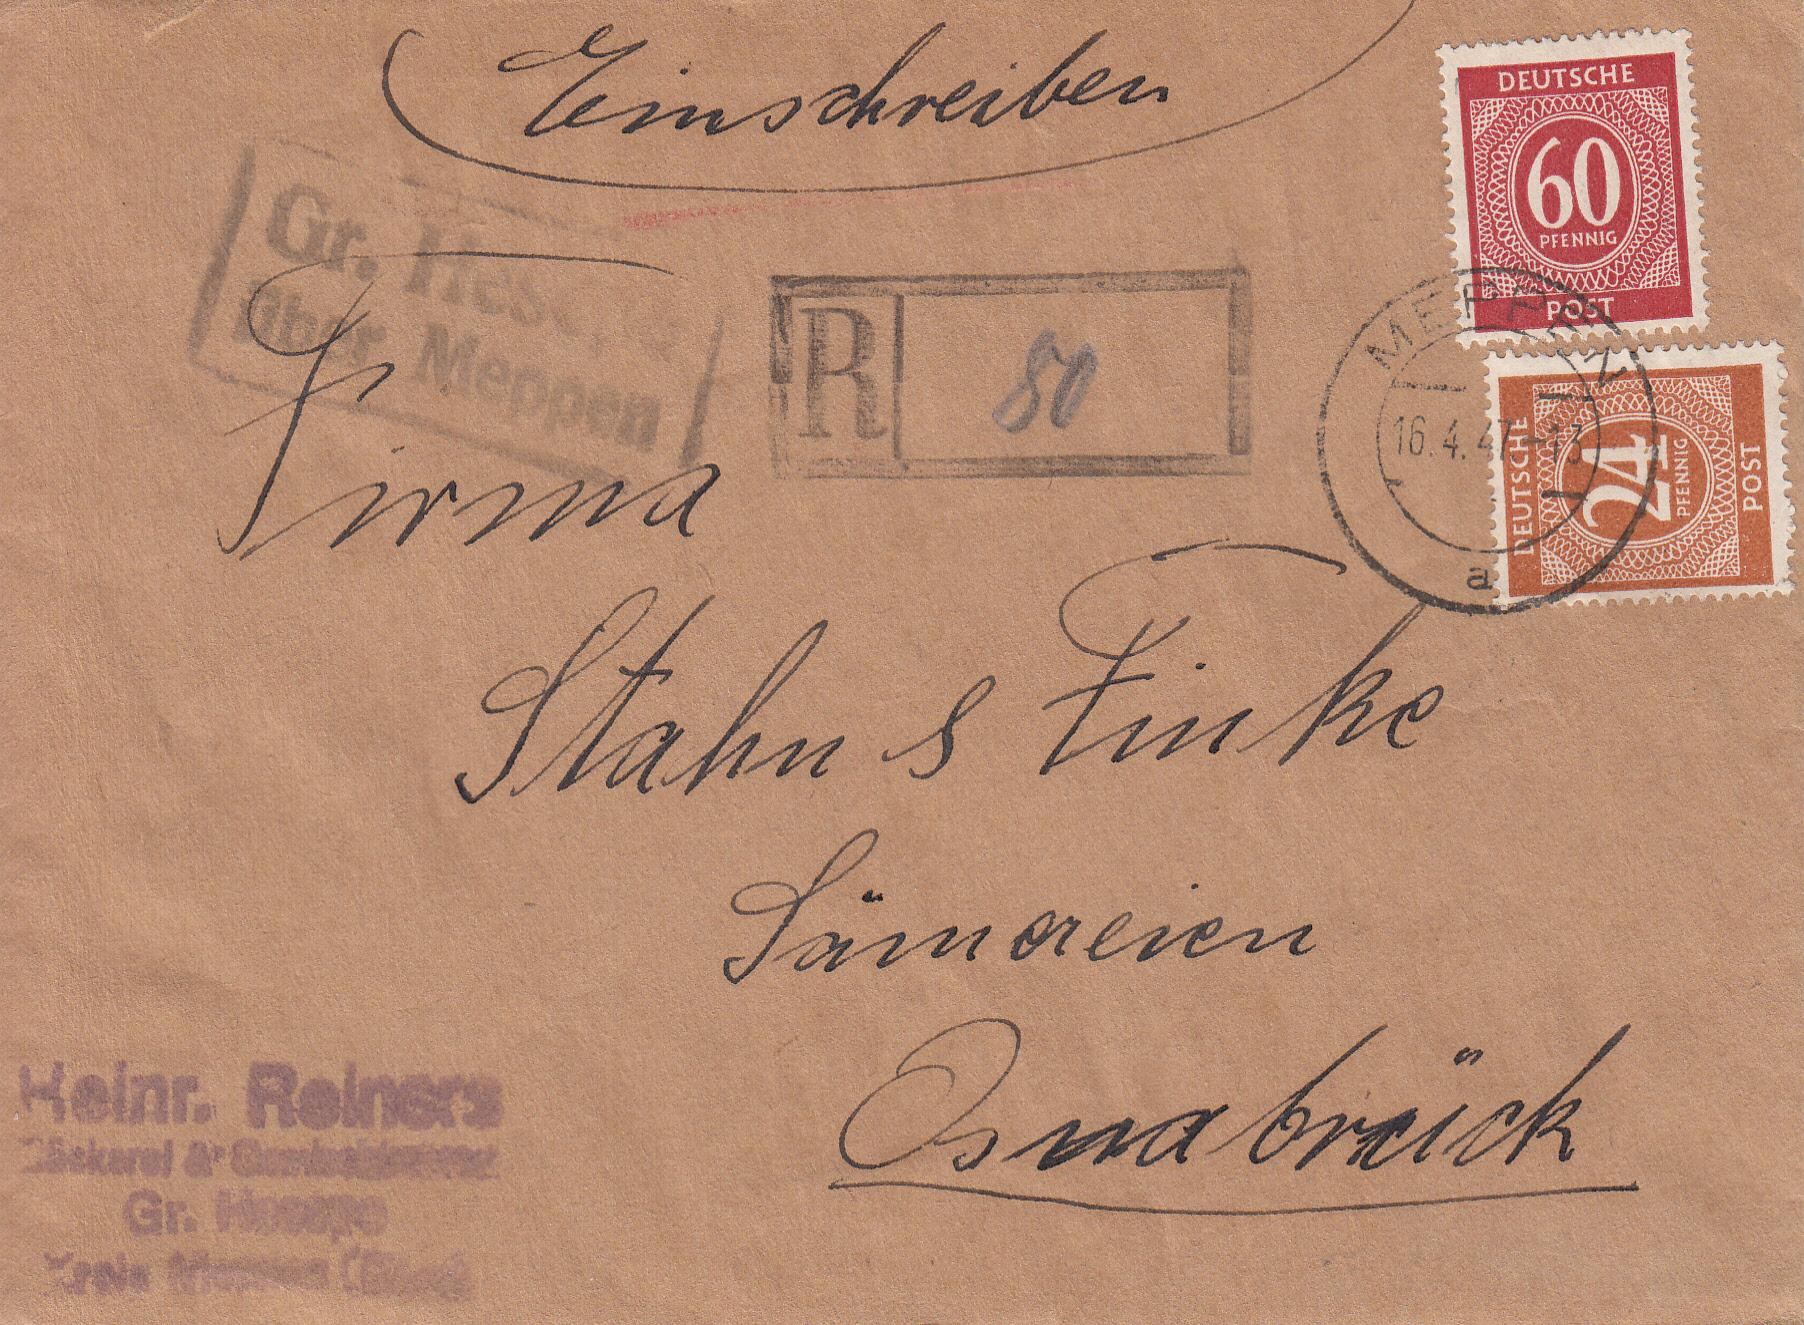 Einschreiben
DEUTSCHE
60
PFENNIG
POST
Gr.
über Meppen
R 80
MEPPEN
16.4.47-13
a
DEUTSCHE
24
PFENNIG
POST
Firma
Stahn & Finke
Sämereien
Osnabrück
Heinr. Reiners
Bäckerei &
Gr. Hesepe
Kreis Meppen